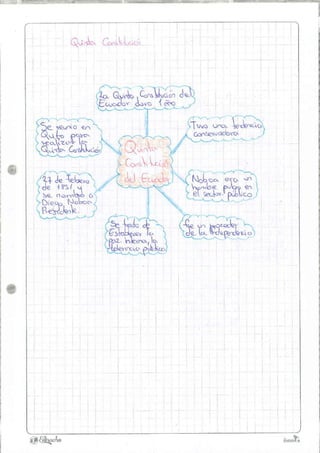 Quinta Constitució
La Quinta Constitución del
Ecuador duro 1 año
Se reunio en
Quito para
realizar la
Quinta Constitució
Tuvo una tendencia
conservadora
Quinta
Constitució
del Ecuador
27 de Febrero
de 1851 y
se nombró a
Diego Noboa
Presidente
Noboa era un
hombre en
el sector público
Se trato de
Establecer la
paz interna, la
pública
fue un
de la Independencia